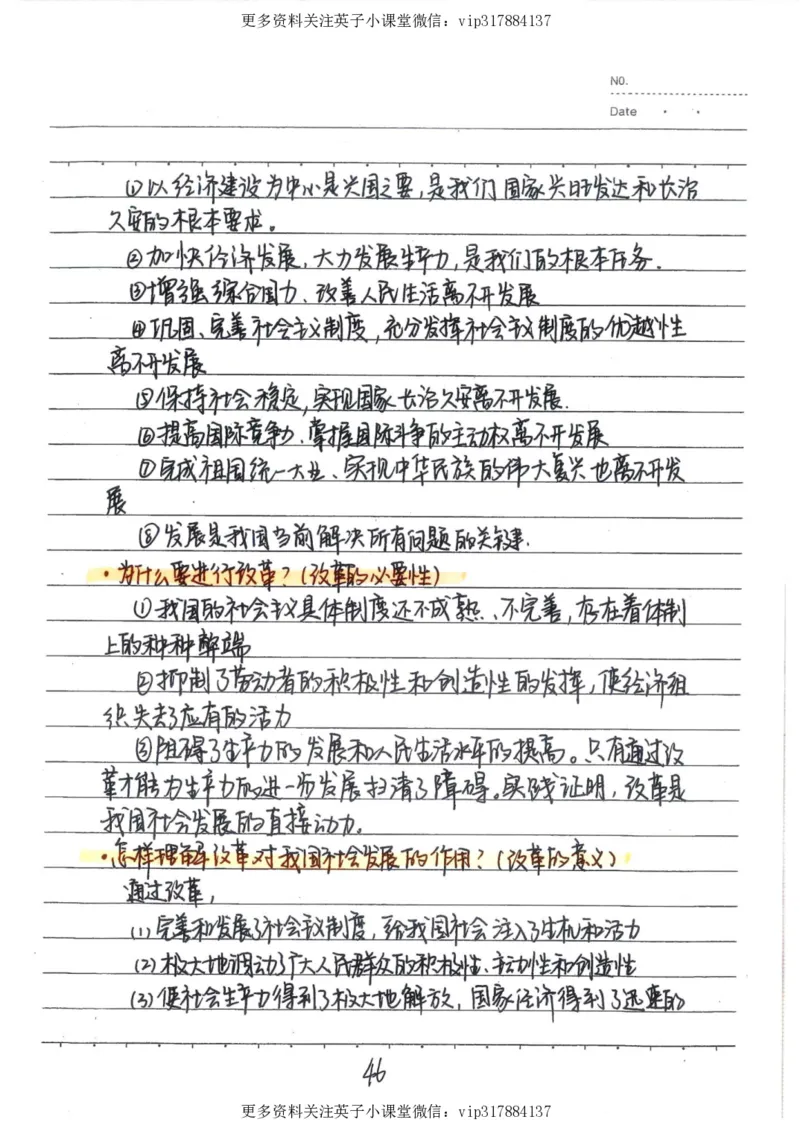 更多资料关注英子小课堂微信：vip317884137
NO.
Date
①以经济建设为中心是兴国之要，是我们国家兴旺发达和长治
久安的根本要求。
②加快经济发展，大力发展生产力，是我们的根本任务.
③增强综合国力、改善人民生活离不开发展
④巩固、完善社会主义制度，充分发挥社会主义制度的优越性
离不开发展
⑤保持社会稳定，实现国家长治久安离不开发展.
⑥提高国际竞争力、掌握国际斗争的主动权离不开发展
⑦完成祖国统一大业、实现中华民族的伟大复兴也离不开发
展
⑧发展是我国当前解决所有问题的关键.
·为什么要进行改革？（改革的必要性）
①我国的社会主义具体制度还不成熟、不完善，存在着体制
上的种种弊端
②抑制了劳动者的积极性和创造性的发挥，使经济组
织失去了应有的活力
③阻碍了生产力的发展和人民生活水平的提高。只有通过改
革才能为生产力的进一步发展扫清了障碍。实践证明，改革是
我国社会发展的直接动力。
·怎样理解改革对我国社会发展的作用？（改革的意义）
通过改革，
(1)完善和发展了社会主义制度，给我国社会注入了生机和活力
(2)极大地调动了广大人民群众的积极性、主动性和创造性
(3)使社会生产力得到了极大地解放，国家经济得到了迅速的
46
更多资料关注英子小课堂微信：vip317884137